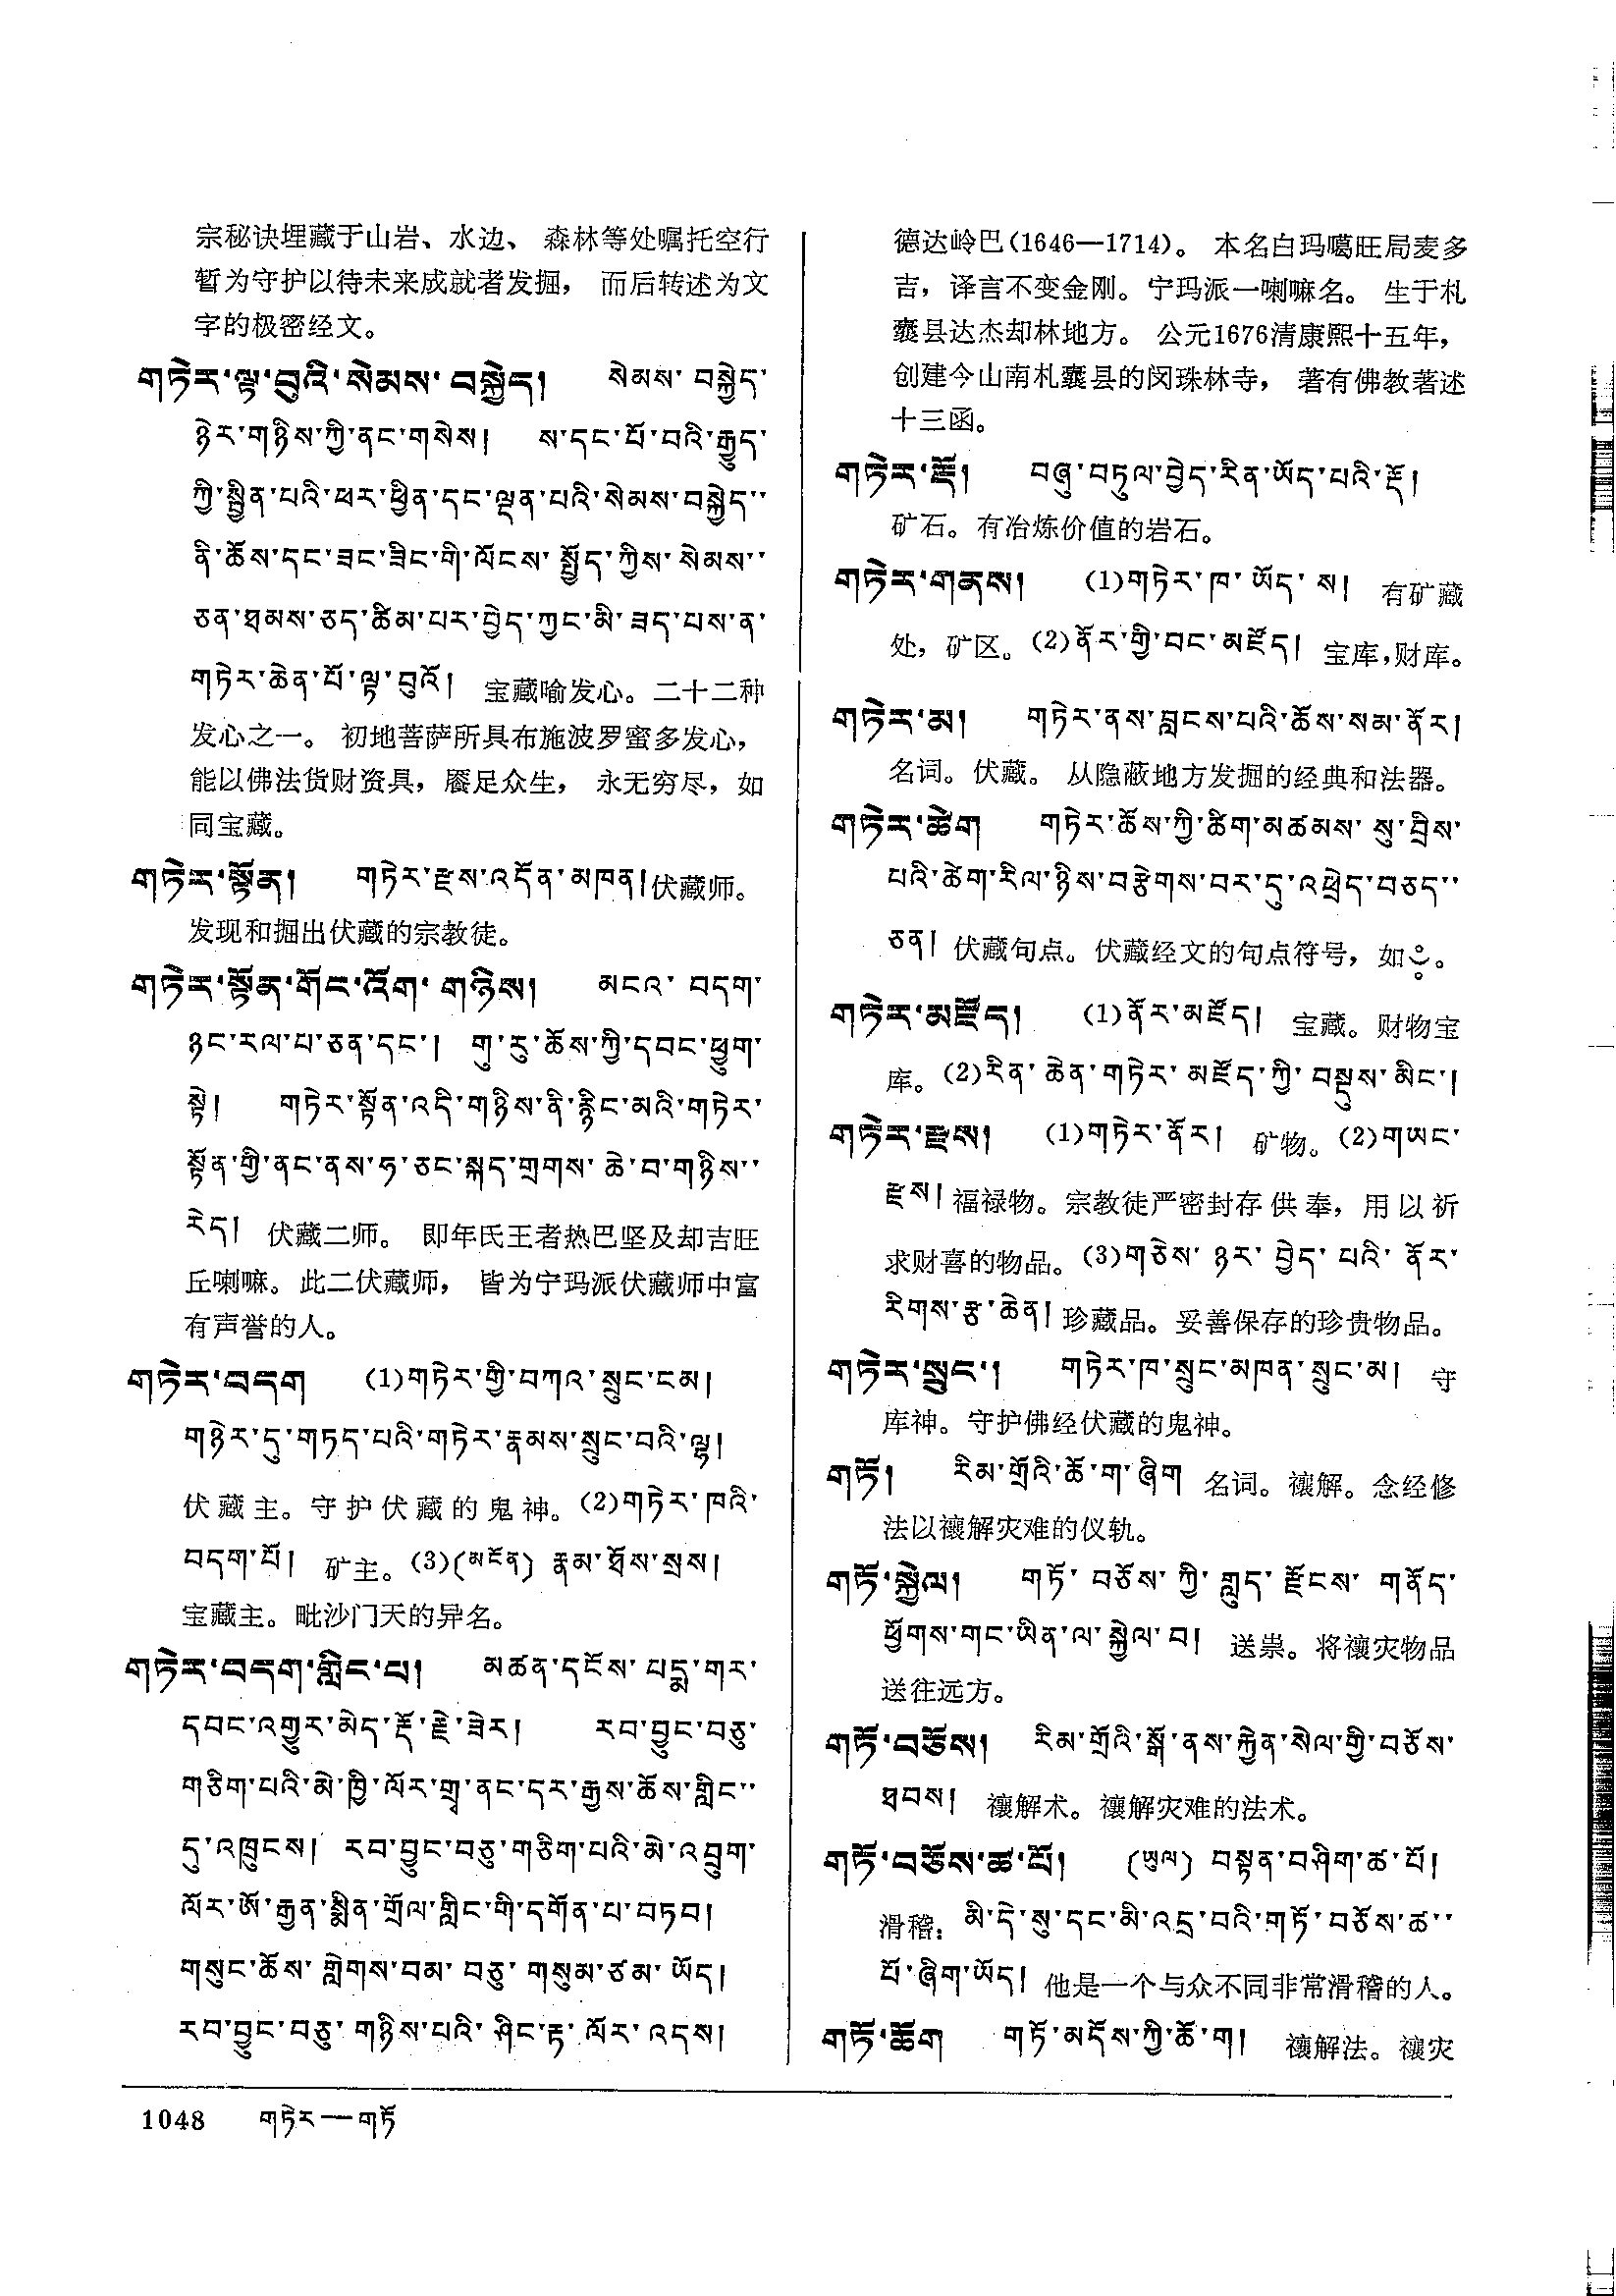 宗秘诀埋藏于山岩、水边、 森林等处嘱托空行
暂为守护以待未来成就者发掘， 而后转述为文
字的极密经文。
གཏེར་ལྟ་བུའི་སེམས་བསྐྱེད། སེམས་བསྐྱེད་
ཉེར་གཉིས་ཀྱི་ནང་གསེས། ས་དང་པོ་བའི་རྒྱུད་
ཀྱི་སྦྱིན་པའི་ཕར་ཕྱིན་དང་ལྡན་པའི་སེམས་བསྐྱེད་་
ནི་ཆོས་དང་ཟང་ཟིང་གི་ལོངས་སྤྱོད་ཀྱིས་སེམས་་
ཅན་ཐམས་ཅད་ཚིམ་པར་བྱེད་ཀྱང་མི་ཟད་པས་ན་
གཏེར་ཆེན་པོ་ལྟ་བུའོ། 宝藏喻发心。二十二种
发心之一。 初地菩萨所具布施波罗蜜多发心，
能以佛法货财资具，餍足众生， 永无穷尽，如
同宝藏。
གཏེར་སྟོན། གཏེར་རྫས་འདོན་མཁན།伏藏师。
发现和掘出伏藏的宗教徒。
གཏེར་སྟོན་གོང་འོག་གཉིས། མངའ་བདག་
ཉང་རལ་པ་ཅན་དང་། གུ་རུ་ཆོས་ཀྱི་དབང་ཕྱུག་
སྟེ། གཏེར་སྟོན་འདི་གཉིས་ནི་རྙིང་མའི་གཏེར་
སྟོན་གྱི་ནང་ནས་ཧ་ཅང་སྐད་གྲགས་ཆེ་བ་གཉིས་་
རེད། 伏藏二师。 即年氏王者热巴坚及却吉旺
丘喇嘛。此二伏藏师， 皆为宁玛派伏藏师中富
有声誉的人。
གཏེར་བདག (1)གཏེར་གྱི་བཀའ་སྲུང་ངམ།
གཉེར་དུ་གཏད་པའི་གཏེར་རྣམས་སྲུང་བའི་ལྷ།
伏藏主。守护伏藏的鬼神。(2)གཏེར་ཁའི་
བདག་པོ། 矿主。(3)(མངོན) རྣམ་ཐོས་སྲས།
宝藏主。毗沙门天的异名。
གཏེར་བདག་གླིང་པ། མཚན་དངོས་པདྨ་གར་
དབང་འགྱུར་མེད་རྡོ་རྗེ་ཟེར། རབ་བྱུང་བཅུ་
གཅིག་པའི་མེ་ཁྱི་ལོར་གྲྭ་ནང་དར་རྒྱས་ཆོས་གླིང་་
དུ་འཁྲུངས། རབ་བྱུང་བཅུ་གཅིག་པའི་མེ་འབྲུག་
ལོར་ཨོ་རྒྱན་སྨིན་གྲོལ་གླིང་གི་དགོན་པ་བཏབ།
གསུང་ཆོས་གླེགས་བམ་བཅུ་གསུམ་ཙམ་ཡོད།
རབ་བྱུང་བཅུ་གཉིས་པའི་ཤིང་རྟ་ལོར་འདས།
德达岭巴(1646—1714)。 本名白玛噶旺局麦多
吉，译言不变金刚。宁玛派一喇嘛名。 生于札
囊县达杰却林地方。 公元1676清康熙十五年，
创建今山南札囊县的闵珠林寺， 著有佛教著述
十三函。
གཏེར་རྡོ། བཞུ་བཏུལ་བྱེད་རིན་ཡོད་པའི་རྡོ།
矿石。有冶炼价值的岩石。
གཏེར་གནས། (1)གཏེར་ཁ་ཡོད་ས། 有矿藏
处，矿区。(2)ནོར་གྱི་བང་མཛོད། 宝库，财库。
གཏེར་མ། གཏེར་ནས་བླངས་པའི་ཆོས་སམ་ནོར།
名词。伏藏。 从隐蔽地方发掘的经典和法器。
གཏེར་ཚེག གཏེར་ཆོས་ཀྱི་ཚིག་མཚམས་སུ་བྲིས་
པའི་ཚེག་རིལ་ཉིས་བརྩེགས་བར་དུ་འཕྲེད་བཅད་་
ཅན། 伏藏句点。伏藏经文的句点符号，如༔。
གཏེར་མཛོད། (1)ནོར་མཛོད། 宝藏。财物宝
库。(2)རིན་ཆེན་གཏེར་མཛོད་ཀྱི་བསྡུས་མིང་།
གཏེར་རྫས། (1)གཏེར་ནོར། 矿物。(2)གཡང་
རྫས།福禄物。宗教徒严密封存供奉，用以祈
求财喜的物品。(3)གཅེས་ཉར་བྱེད་པའི་ནོར་
རིགས་རྩ་ཆེན།珍藏品。妥善保存的珍贵物品。
གཏེར་སྲུང་། གཏེར་ཁ་སྲུང་མཁན་སྲུང་མ། 守
库神。守护佛经伏藏的鬼神。
གཏོ། རིམ་གྲོའི་ཆོ་ག་ཞིག 名词。禳解。念经修
法以禳解灾难的仪轨。
གཏོ་སྐྱེལ། གཏོ་བཅོས་ཀྱི་གླུད་རྫོངས་གནོད་
ཕྱོགས་གང་ཡིན་ལ་སྐྱེལ་བ། 送祟。将禳灾物品
送往远方。
གཏོ་བཅོས། རིམ་གྲོའི་སྒོ་ནས་རྐྱེན་སེལ་གྱི་བཅོས་
ཐབས། 禳解术。禳解灾难的法术。
གཏོ་བཅོས་ཚ་པོ། (ཡུལ) བསྟན་བཤིག་ཚ་པོ།
滑稽：མི་དེ་སུ་དང་མི་འདྲ་བའི་གཏོ་བཅོས་ཚ་་
པོ་ཞིག་ཡོད།他是一个与众不同非常滑稽的人。
གཏོ་ཆོག གཏོ་མདོས་ཀྱི་ཆོ་ག། 禳解法。禳灾
1048 གཏེར—གཏོ